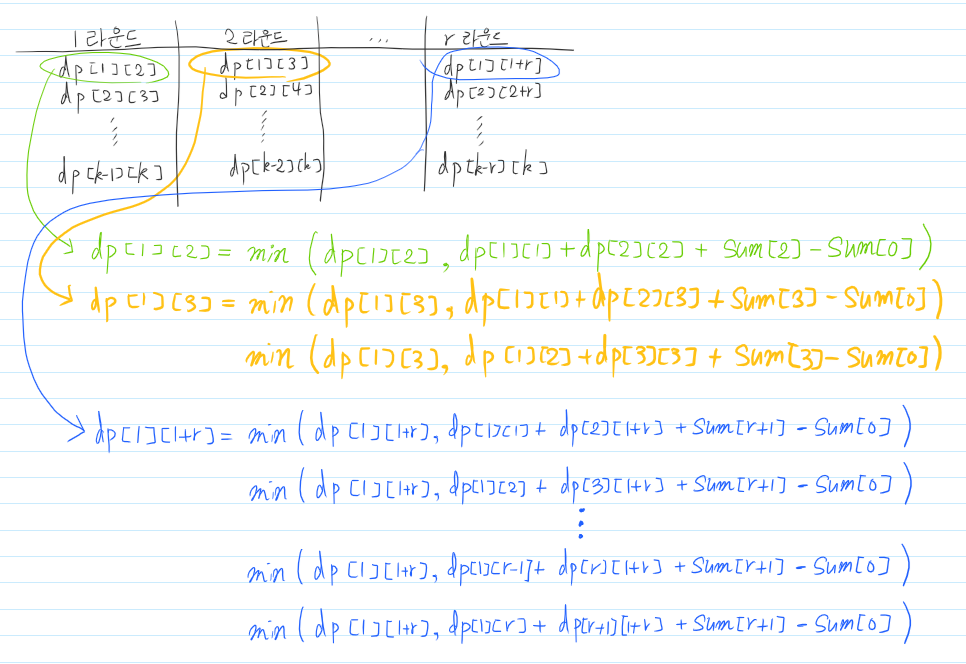 1 라운드 2 라운드 ... r 라운드
dp[1][2] dp[1][3] dp[1][1+r]
dp[2][3] dp[2][4] dp[2][2+r]
⋮ ⋮ ⋮
dp[k-1][k] dp[k-2][k] dp[k-r][k]
dp[1][2] = min (dp[1][2], dp[1][1]+dp[2][2] + Sum[2]-Sum[0])
dp[1][3] = min (dp[1][3], dp[1][1]+dp[2][3] + Sum[3]-Sum[0])
min (dp[1][3], dp[1][2]+dp[3][3] + Sum[3]-Sum[0])
dp[1][1+r] = min (dp[1][1+r], dp[1][1] + dp[2][1+r] + Sum[r+1] - Sum[0])
min (dp[1][1+r], dp[1][2] + dp[3][1+r] + Sum[r+1] - Sum[0])
⋮
min (dp[1][1+r], dp[1][r-1] + dp[r][1+r] + Sum[r+1] - Sum[0])
min (dp[1][1+r], dp[1][r] + dp[r+1][1+r] + Sum[r+1] - Sum[0])